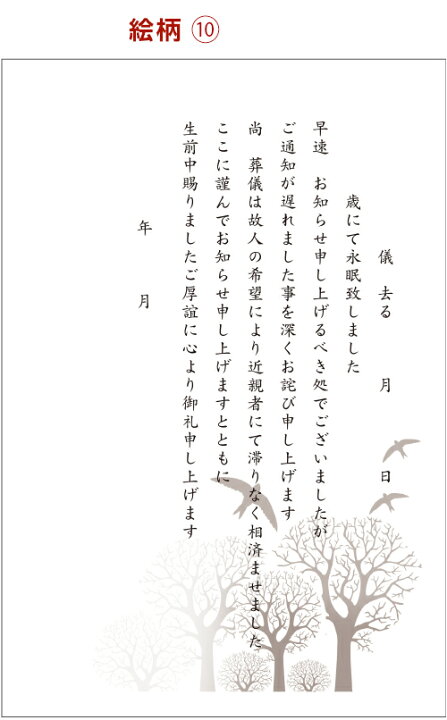 絵柄 ⑩
儀 去る 月 日
歳にて永眠致しました
早速 お知らせ申し上げるべき処でございましたが
ご通知が遅れました事を深くお詫び申し上げます
尚 葬儀は故人の希望により近親者にて滞りなく相済ませました
ここに謹んでお知らせ申し上げますとともに
生前中賜りましたご厚誼に心より御礼申し上げます
年 月